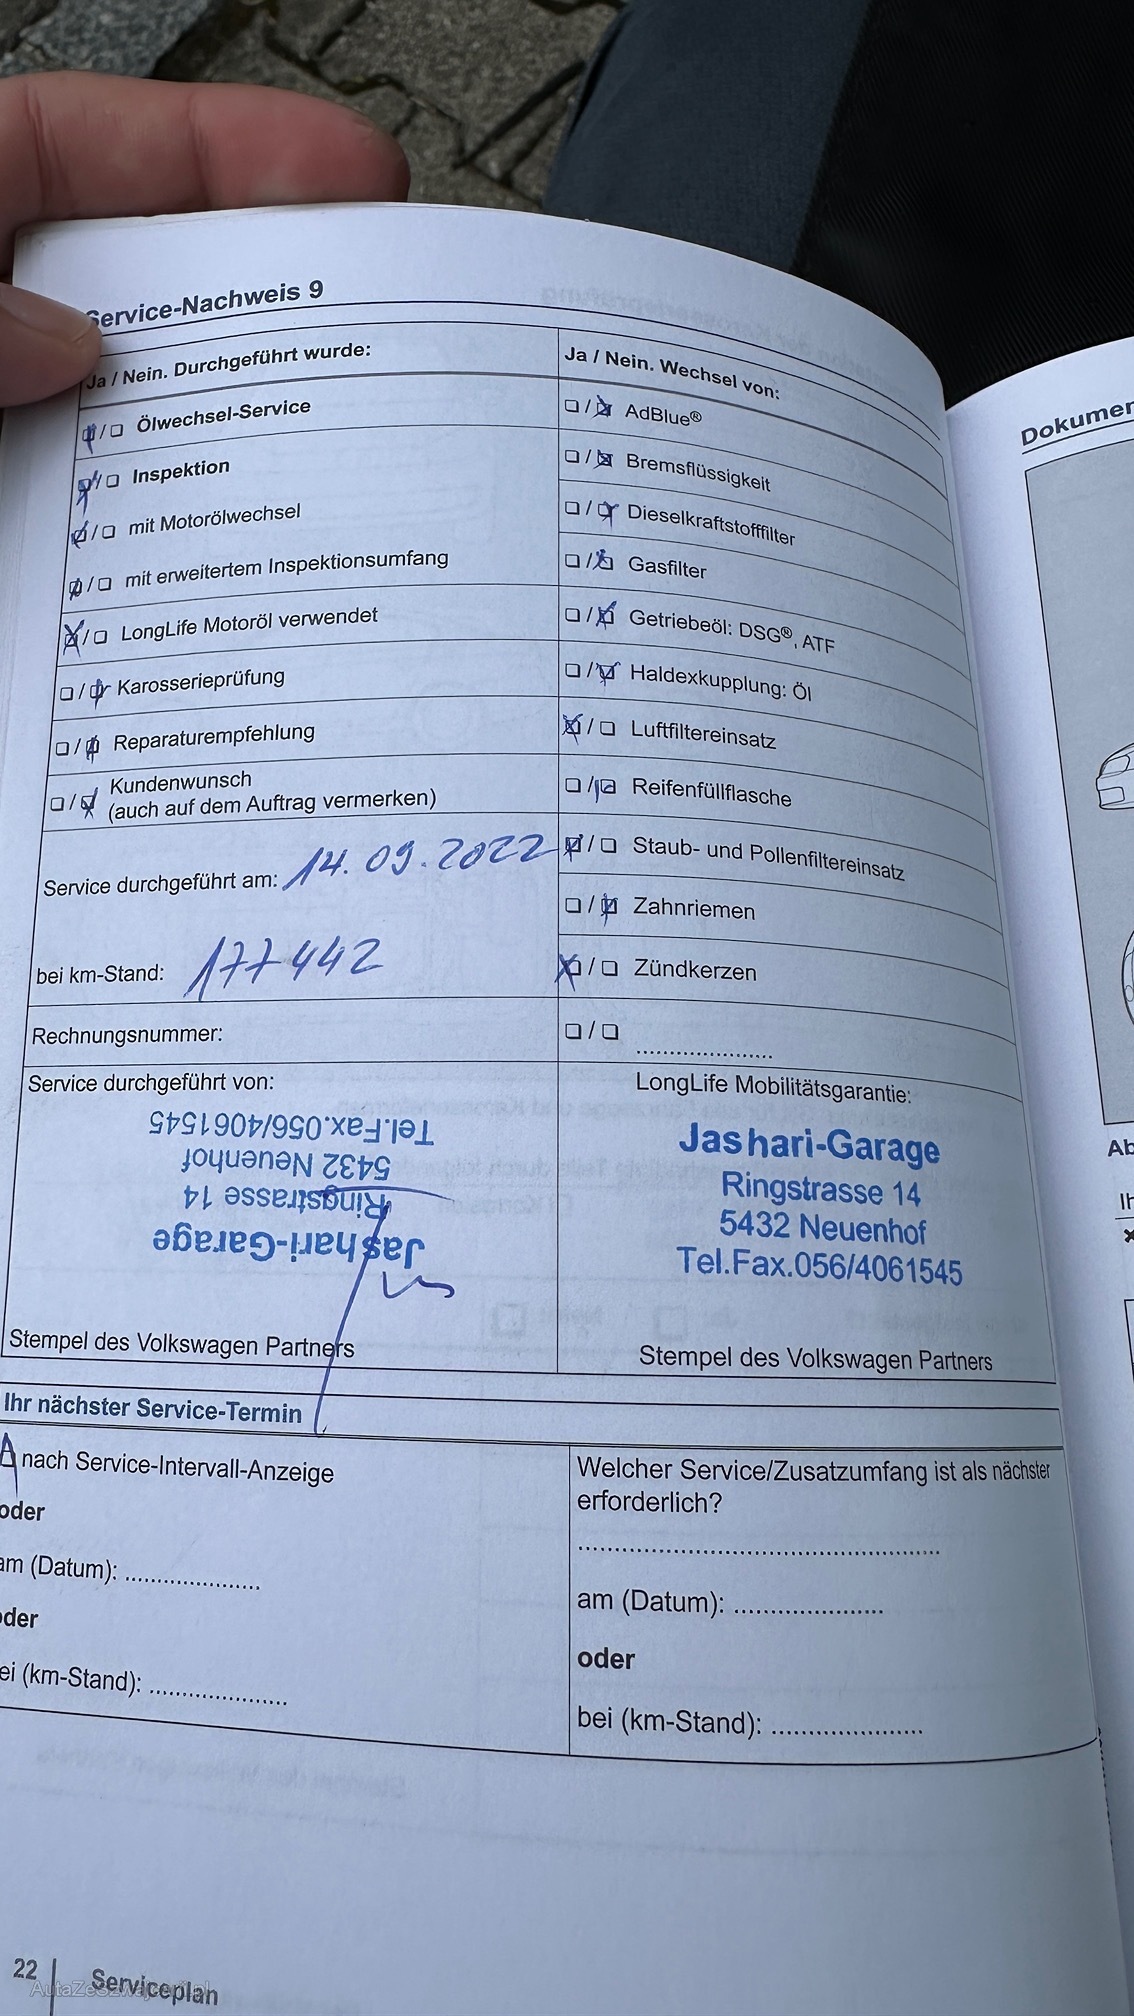 Service-Nachweis 9
Ja / Nein. Durchgeführt wurde:
Ölwechsel-Service
Inspektion
mit Motorölwechsel
mit erweitertem Inspektionsumfang
LongLife Motoröl verwendet
Karosserieprüfung
Reparaturempfehlung
Kundenwunsch
(auch auf dem Auftrag vermerken)
Service durchgeführt am: 14.09.2022
bei km-Stand: 177442
Rechnungsnummer:
Service durchgeführt von:
Jashari-Garage
Ringstrasse 14
5432 Neuenhof
Tel.Fax.056/4061545
Stempel des Volkswagen Partners
Ja / Nein. Wechsel von:
AdBlue®
Bremsflüssigkeit
Dieselkraftstofffilter
Gasfilter
Getriebeöl: DSG®, ATF
Haldexkupplung: Öl
Luftfiltereinsatz
Reifenfüllflasche
Staub- und Pollenfiltereinsatz
Zahnriemen
Zündkerzen
LongLife Mobilitätsgarantie:
Jashari-Garage
Ringstrasse 14
5432 Neuenhof
Tel.Fax.056/4061545
Stempel des Volkswagen Partners
Ihr nächster Service-Termin
nach Service-Intervall-Anzeige
oder
am (Datum): ....................
oder
ei (km-Stand): ....................
Welcher Service/Zusatzumfang ist als nächster
erforderlich?
am (Datum): ....................
oder
bei (km-Stand): ....................
22 | Serviceplan
Dokumen
Ab
Ih